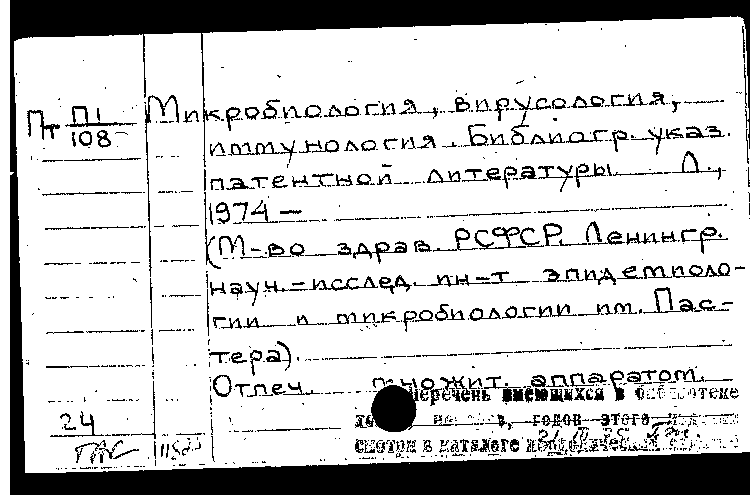 Пт П1/108 Микробиология, вирусология,
иммунология. Библиогр. указ.
патентной литературы. Л.,
1974 —
(М-во здрав. РСФСР. Ленингр.
науч.-исслед. ин-т эпидемиоло-
гии и микробиологии им. Пас-
тера).
Отпеч. множит. аппаратом.
Перечень имеющихся в библиотеке
годов этого
24 смотри в каталоге
ГАС